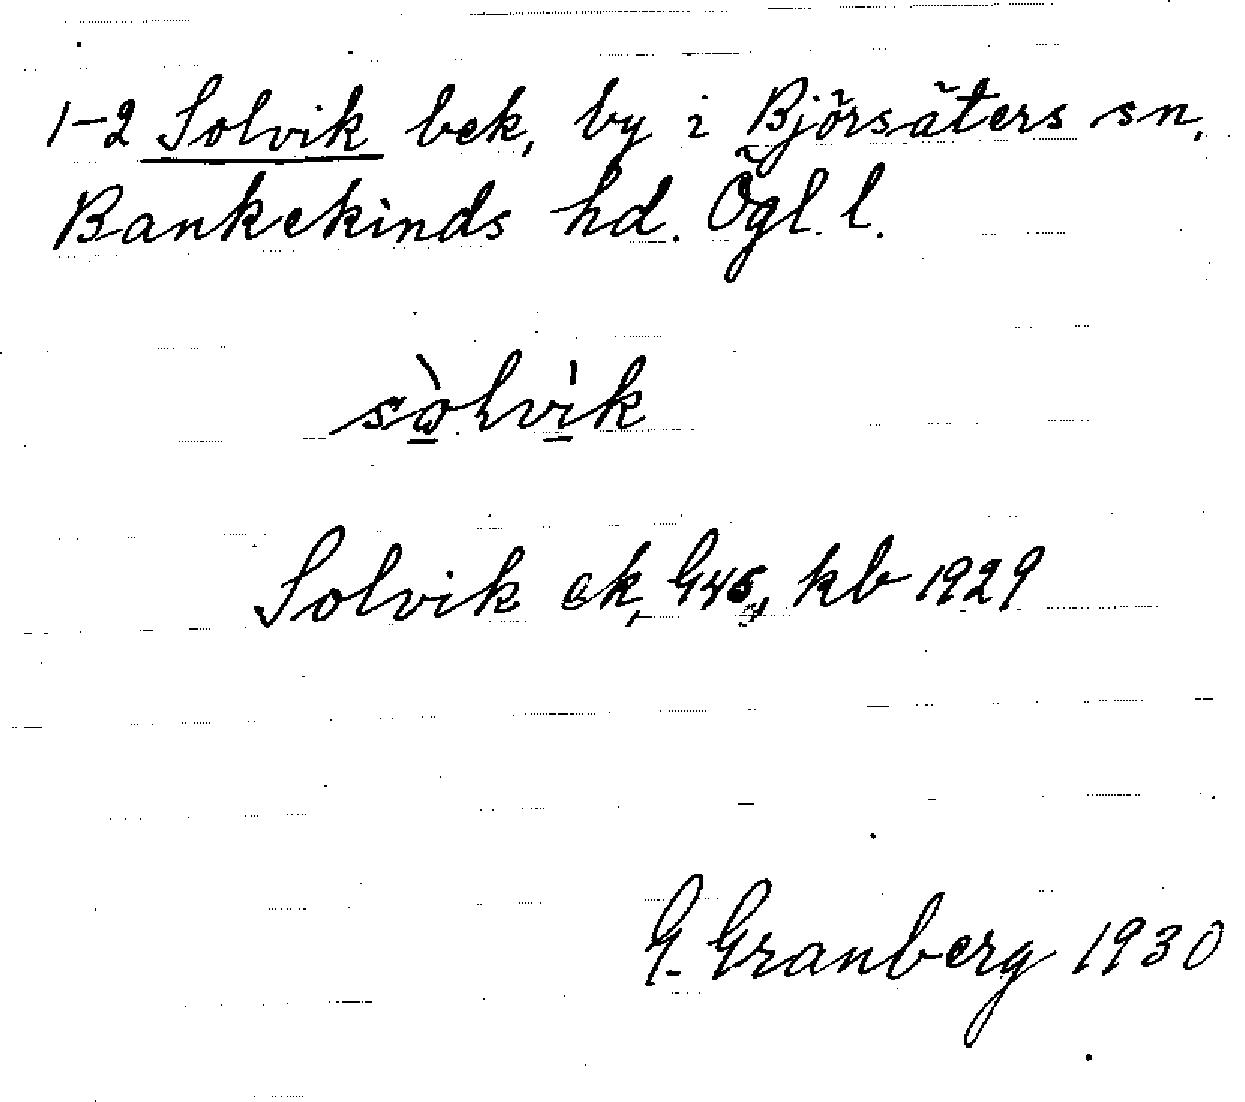 1-2 Solvik bek, by i Björsäters sn,
Bankekinds hd. Ögl. l.
sòlvìk
Solvik ek, G45, kb 1929
G. Granberg 1930